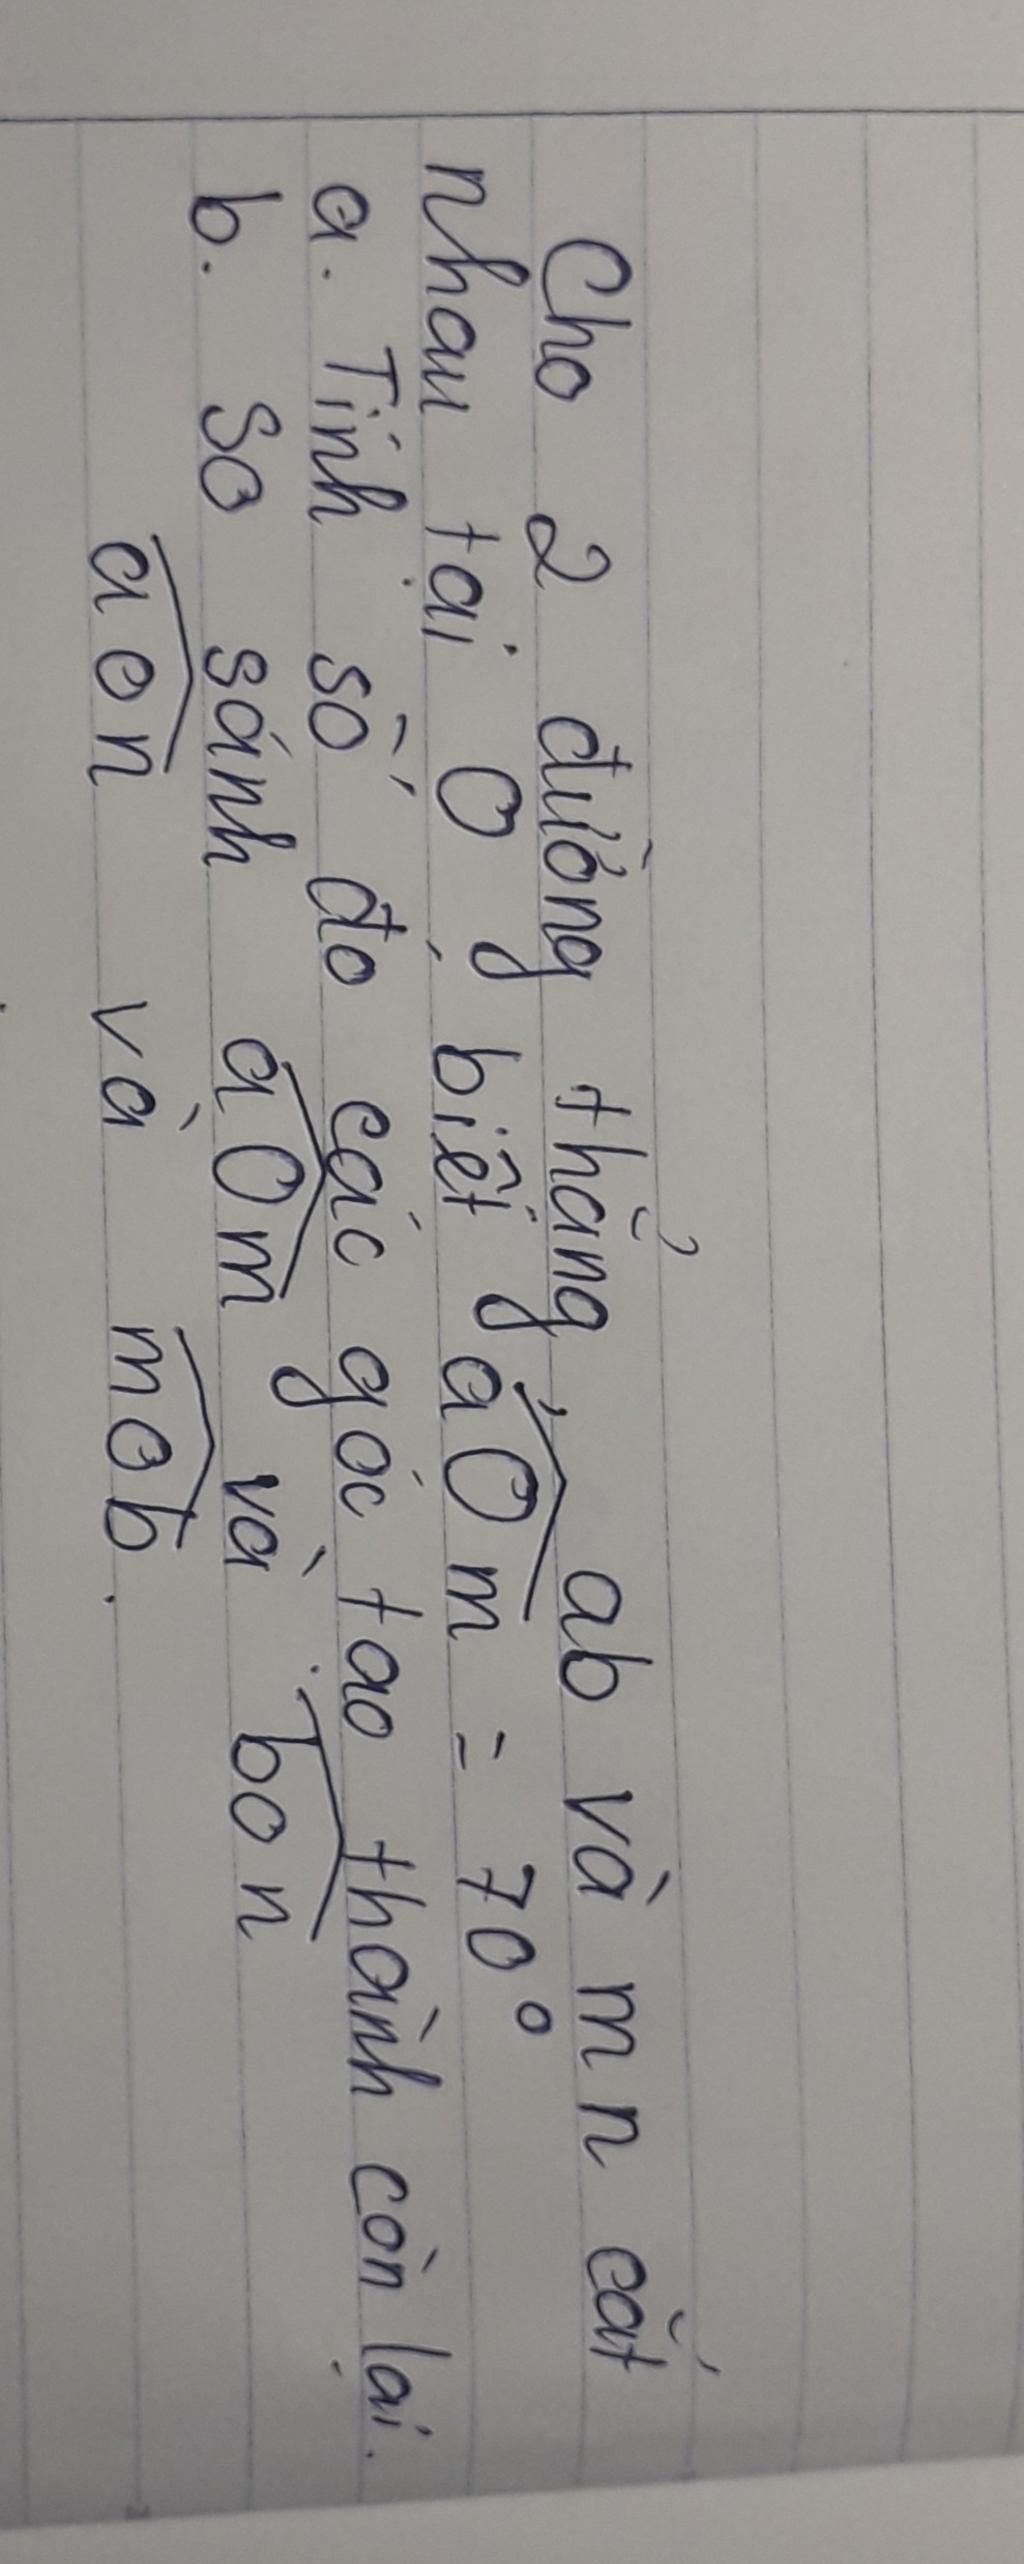 Cho 2 đường thẳng ab và mn cắt
nhau tại O, biết aOm = 70°
a. Tính số đo các góc tạo thành còn lại.
b. So sánh aOm và bon
aon và mob.